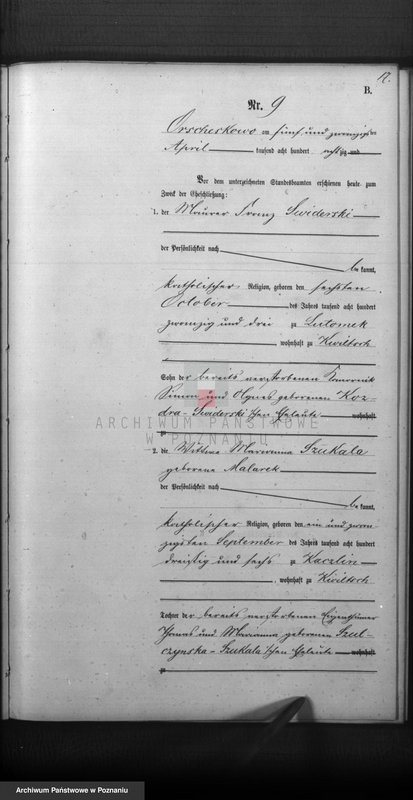 17.
B.
Nr. 9
Orscheskowo am fünf und zwanzigsten
April tausend acht hundert achtzig und
Vor dem unterzeichneten Standesbeamten erschienen heute zum
Zweck der Eheschließung:
1. der Maurer Franz Swiderski
der Persönlichkeit nach
be kannt,
katholischer Religion, geboren den sechsten
October des Jahres tausend acht hundert
zwanzig und drei zu Lutomek
, wohnhaft zu Kwiltsch
Sohn der bereits verstorbenen Komornik
Simon und Agnes geborenen Koz-
dra-Swiderski'schen Eheleute wohnhaft
zu
ARCHIWUM PAŃSTWOWE
W POZNANIU
2. die Wittwe Marianna Szukala
geborene Malarek
der Persönlichkeit nach
be kannt,
katholischer Religion, geboren den ein und zwan-
zigsten September des Jahres tausend acht hundert
dreißig und sechs zu Kaczlin
, wohnhaft zu Kwiltsch
Tochter der bereits verstorbenen Eigenthümer
Thomas und Marianna geborenen Szul-
czynska-Szukala'schen Eheleute wohnhaft
zu
Archiwum Państwowe w Poznaniu